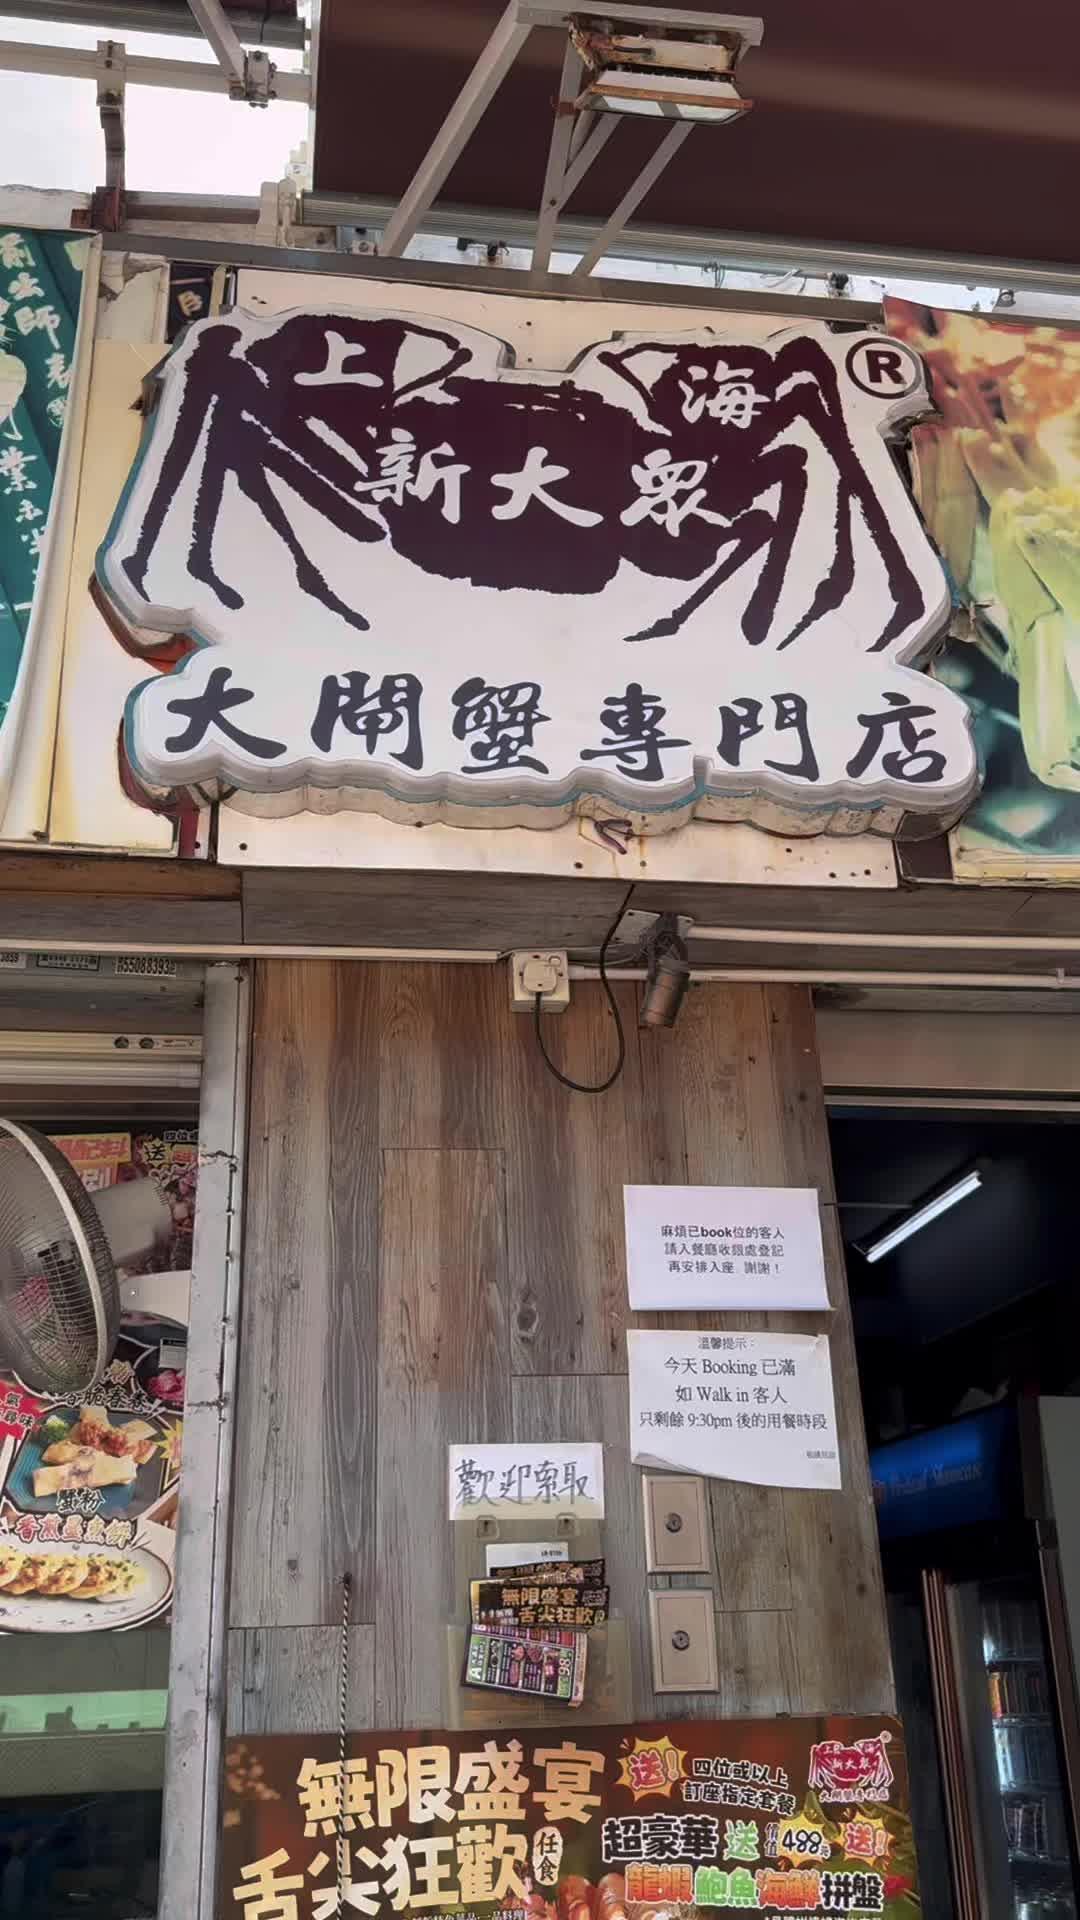 上海
®
新大眾
大閘蟹專門店
55088393
麻煩已book位的客人
請入餐廳收銀處登記
再安排入座 謝謝！
溫馨提示：
今天 Booking 已滿
如 Walk in 客人
只剩餘 9:30pm 後的用餐時段
歡迎索取
無限盛宴
舌尖狂歡
蟹粉
無限盛宴
舌尖狂歡
任食
送!
四位或以上
訂座指定套餐
超豪華送
價值488元
送!
龍蝦鮑魚海鮮拼盤
上海
新大眾
大閘蟹專門店